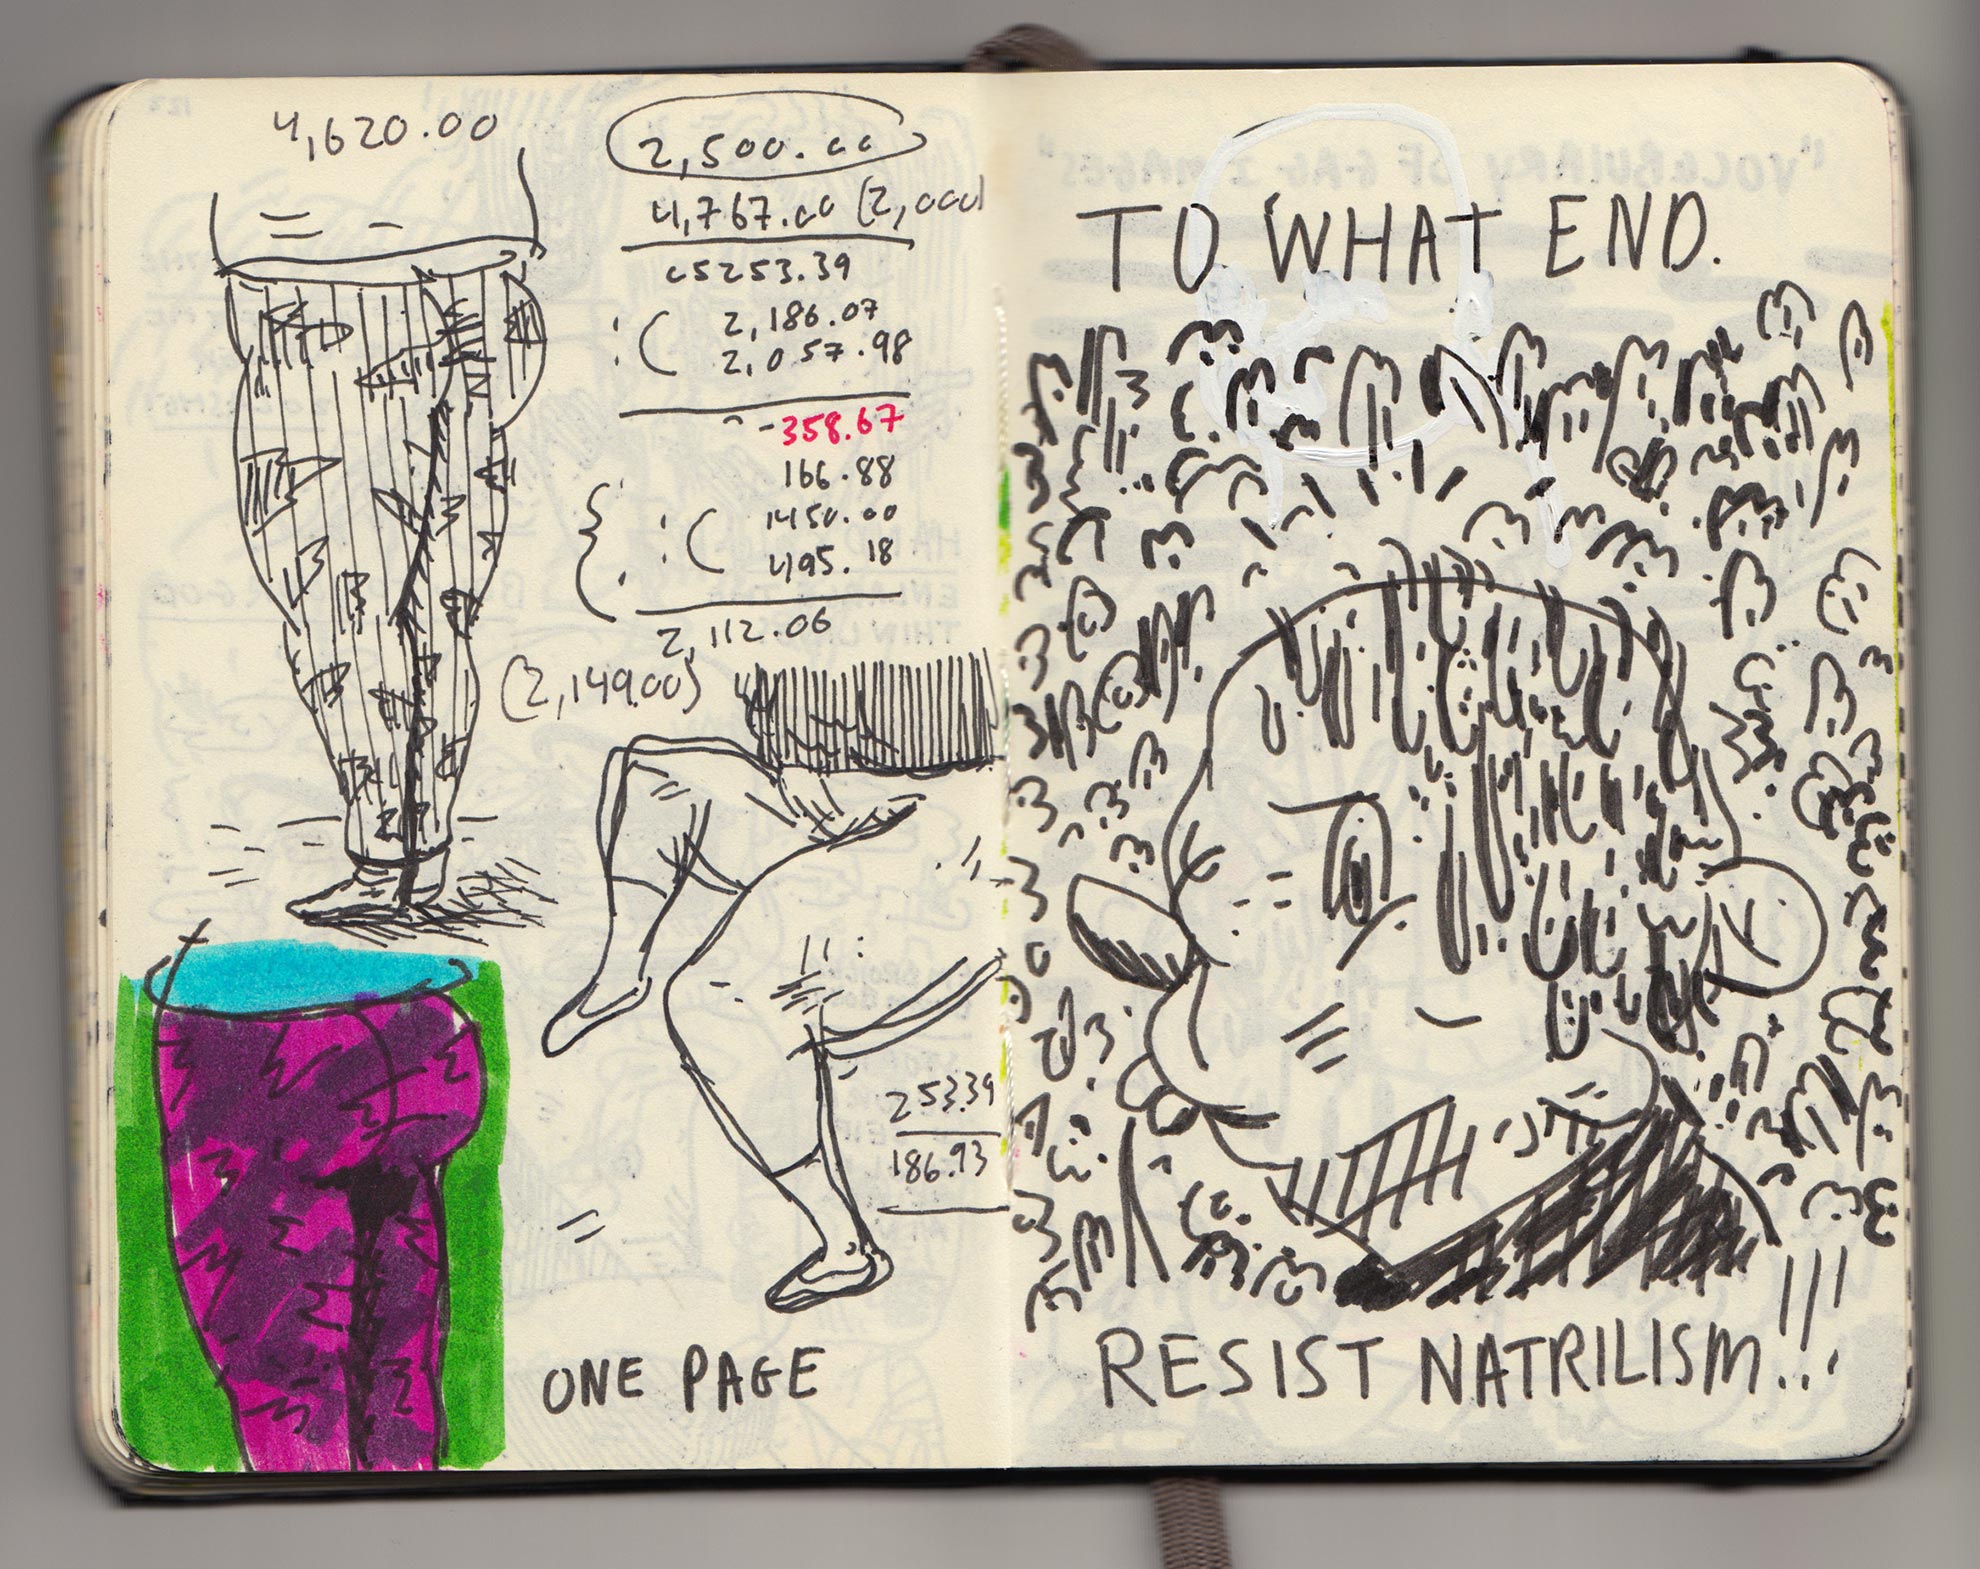 4,620.00
2,500.00
4,767.00 (2,000)
5253.39
:( 2,186.07
2,057.98
-358.67
166.88
:( 1450.00
495.18
2,112.06
(2,149.00)
253.39
186.93
ONE PAGE
TO WHAT END.
"VOCABULARY OF GAG IMAGES"
RESIST NATRILISM...